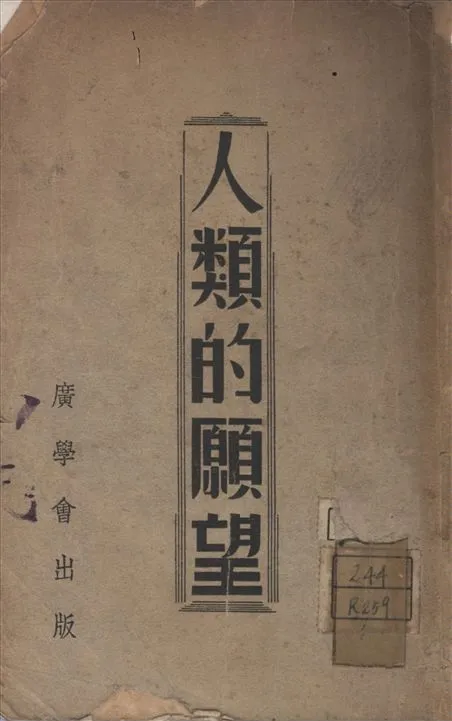 人類的願望
廣學會出版
244
R259